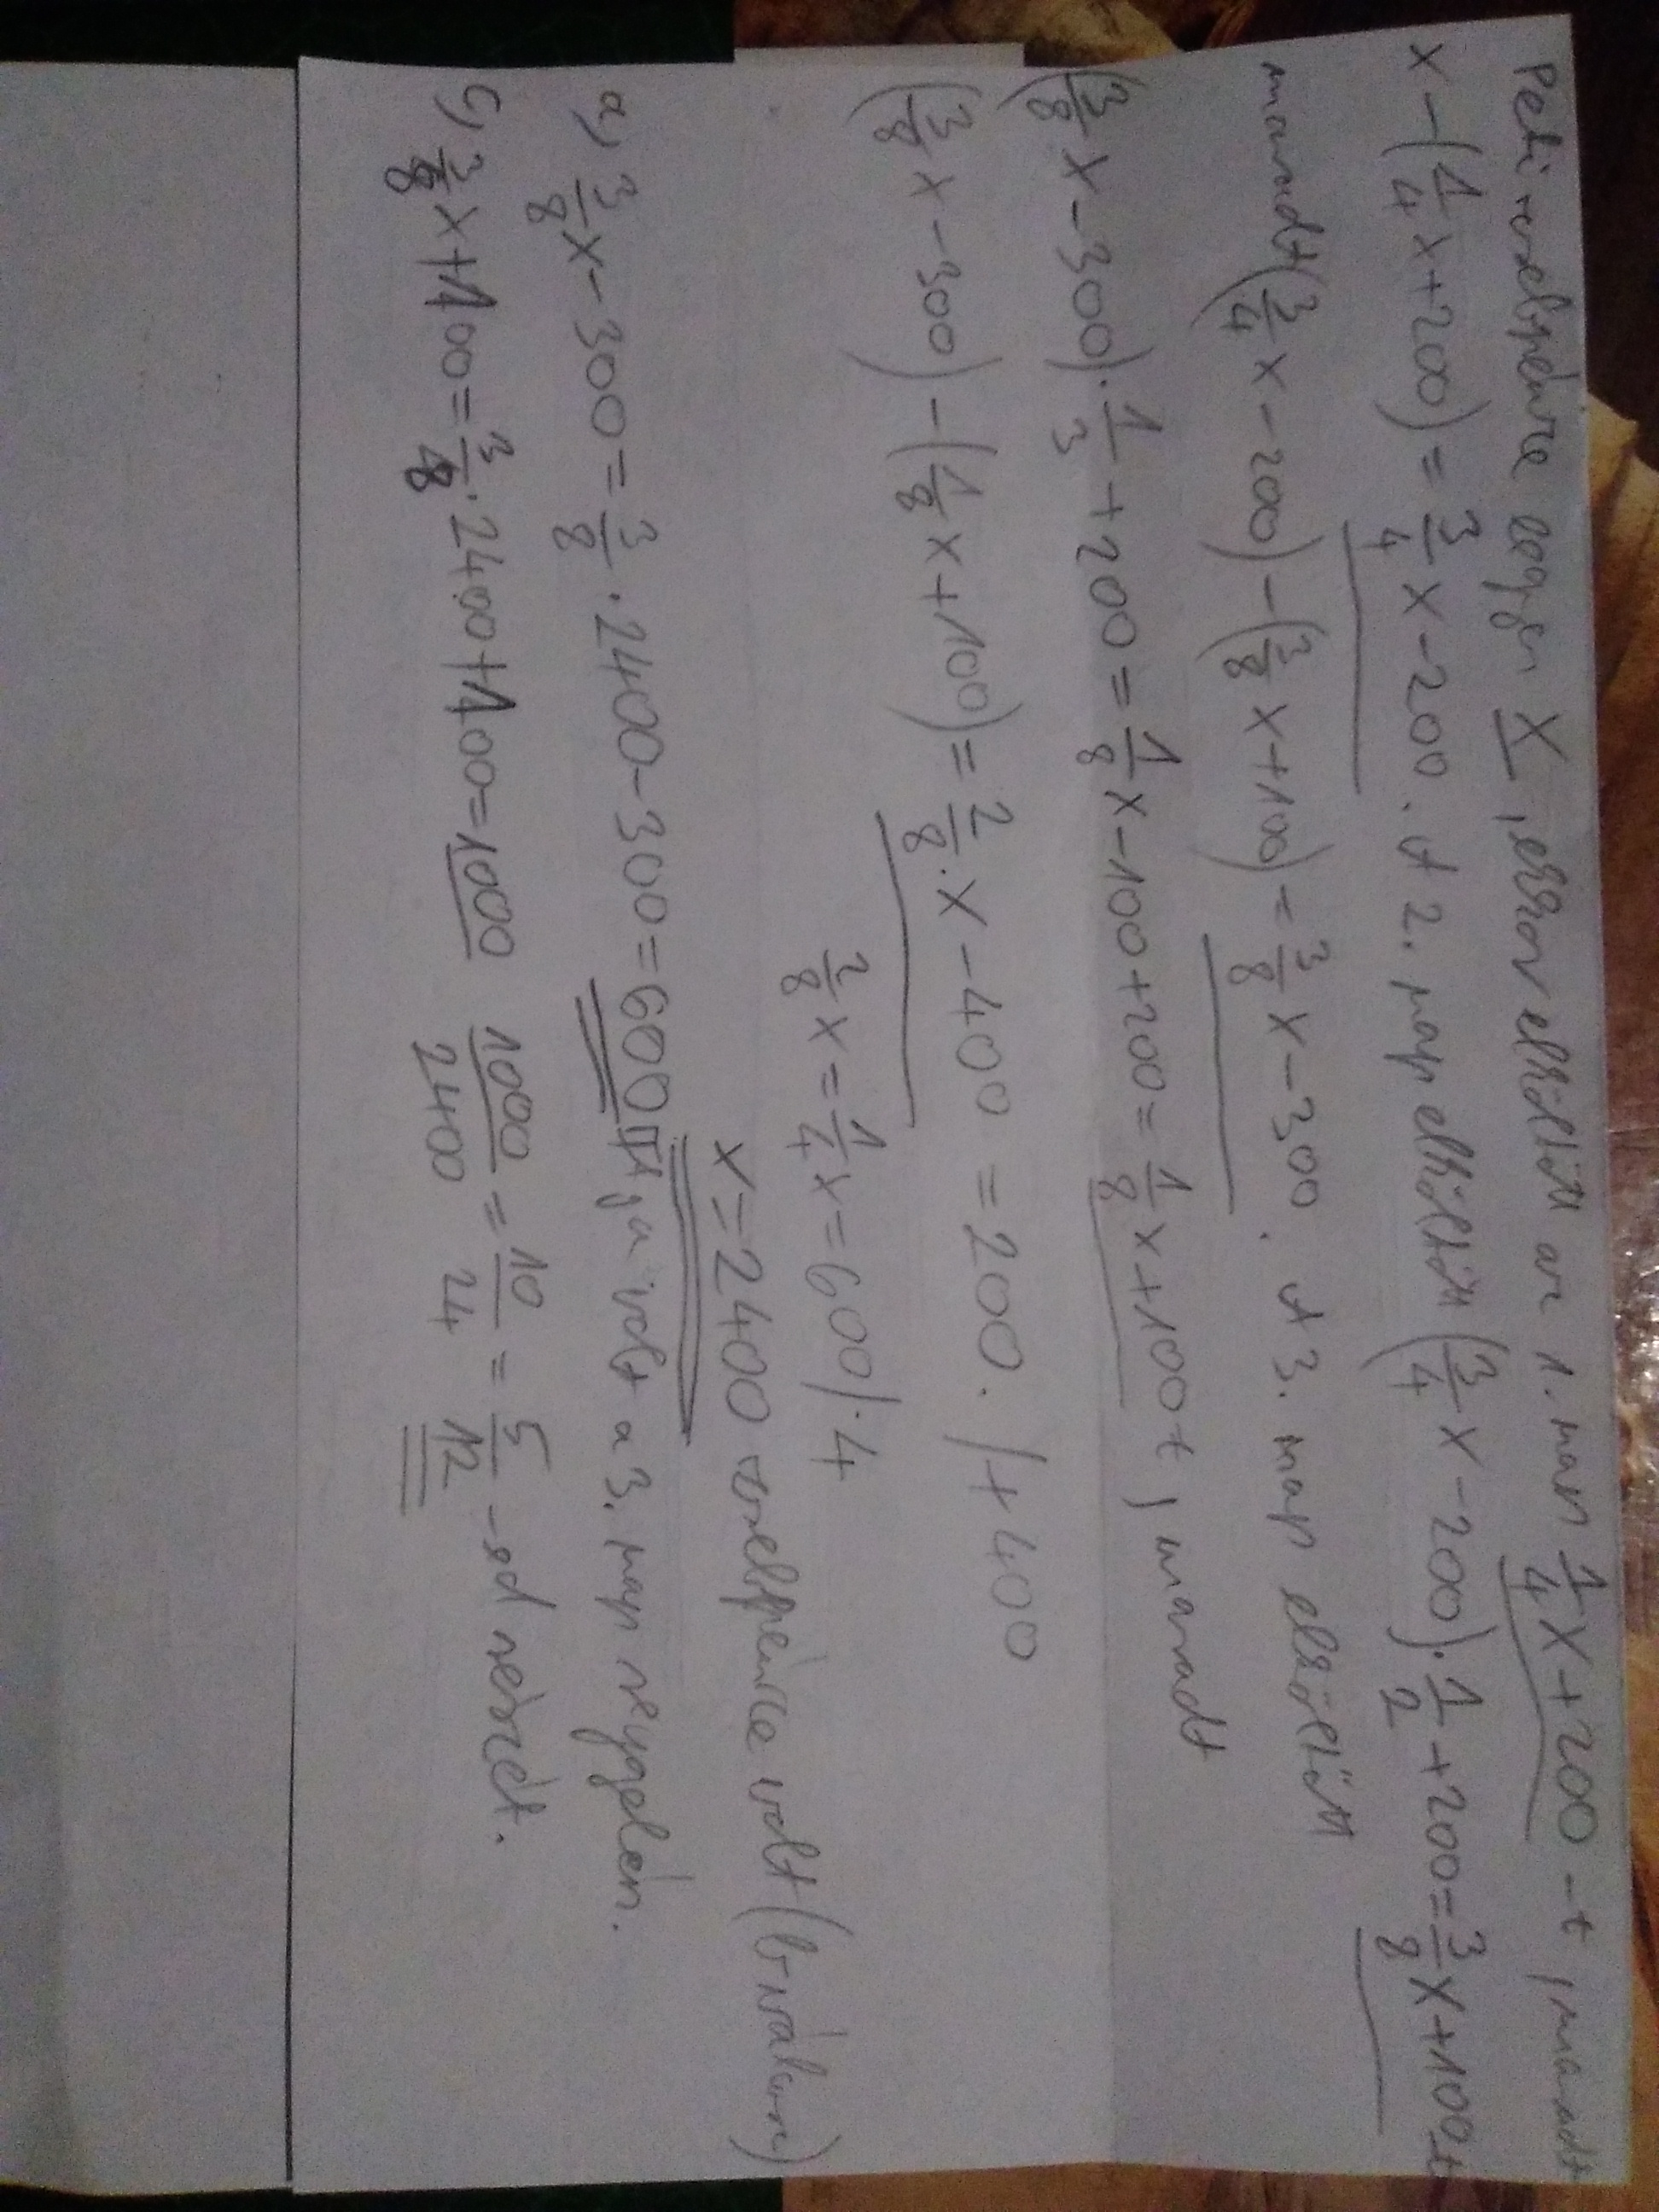 Peti zsebpénze legyen x, ekkor elköltött az 1. nap 1/4x+200-t, maradt
x-(1/4x+200)=3/4x-200. A 2. nap elköltött (3/4x-200)·1/2+200=3/8x+100-t
maradt (3/4x-200)-(3/8x+100)=3/8x-300. A 3. nap elköltött
(3/8x-300)·1/3+200=1/8x-100+200=1/8x+100-t, maradt
(3/8x-300)-(1/8x+100)=2/8·x-400=200. /+400
2/8x=1/4x=600/·4
x=2400 zsebpénze volt (b válasz)
a, 3/8x-300=3/8·2400-300=600 Ft-ja volt a 3. nap reggelén.
c, 3/8x+100=3/8·2400+100=1000 1000/2400=10/24=5/12-ed részét.